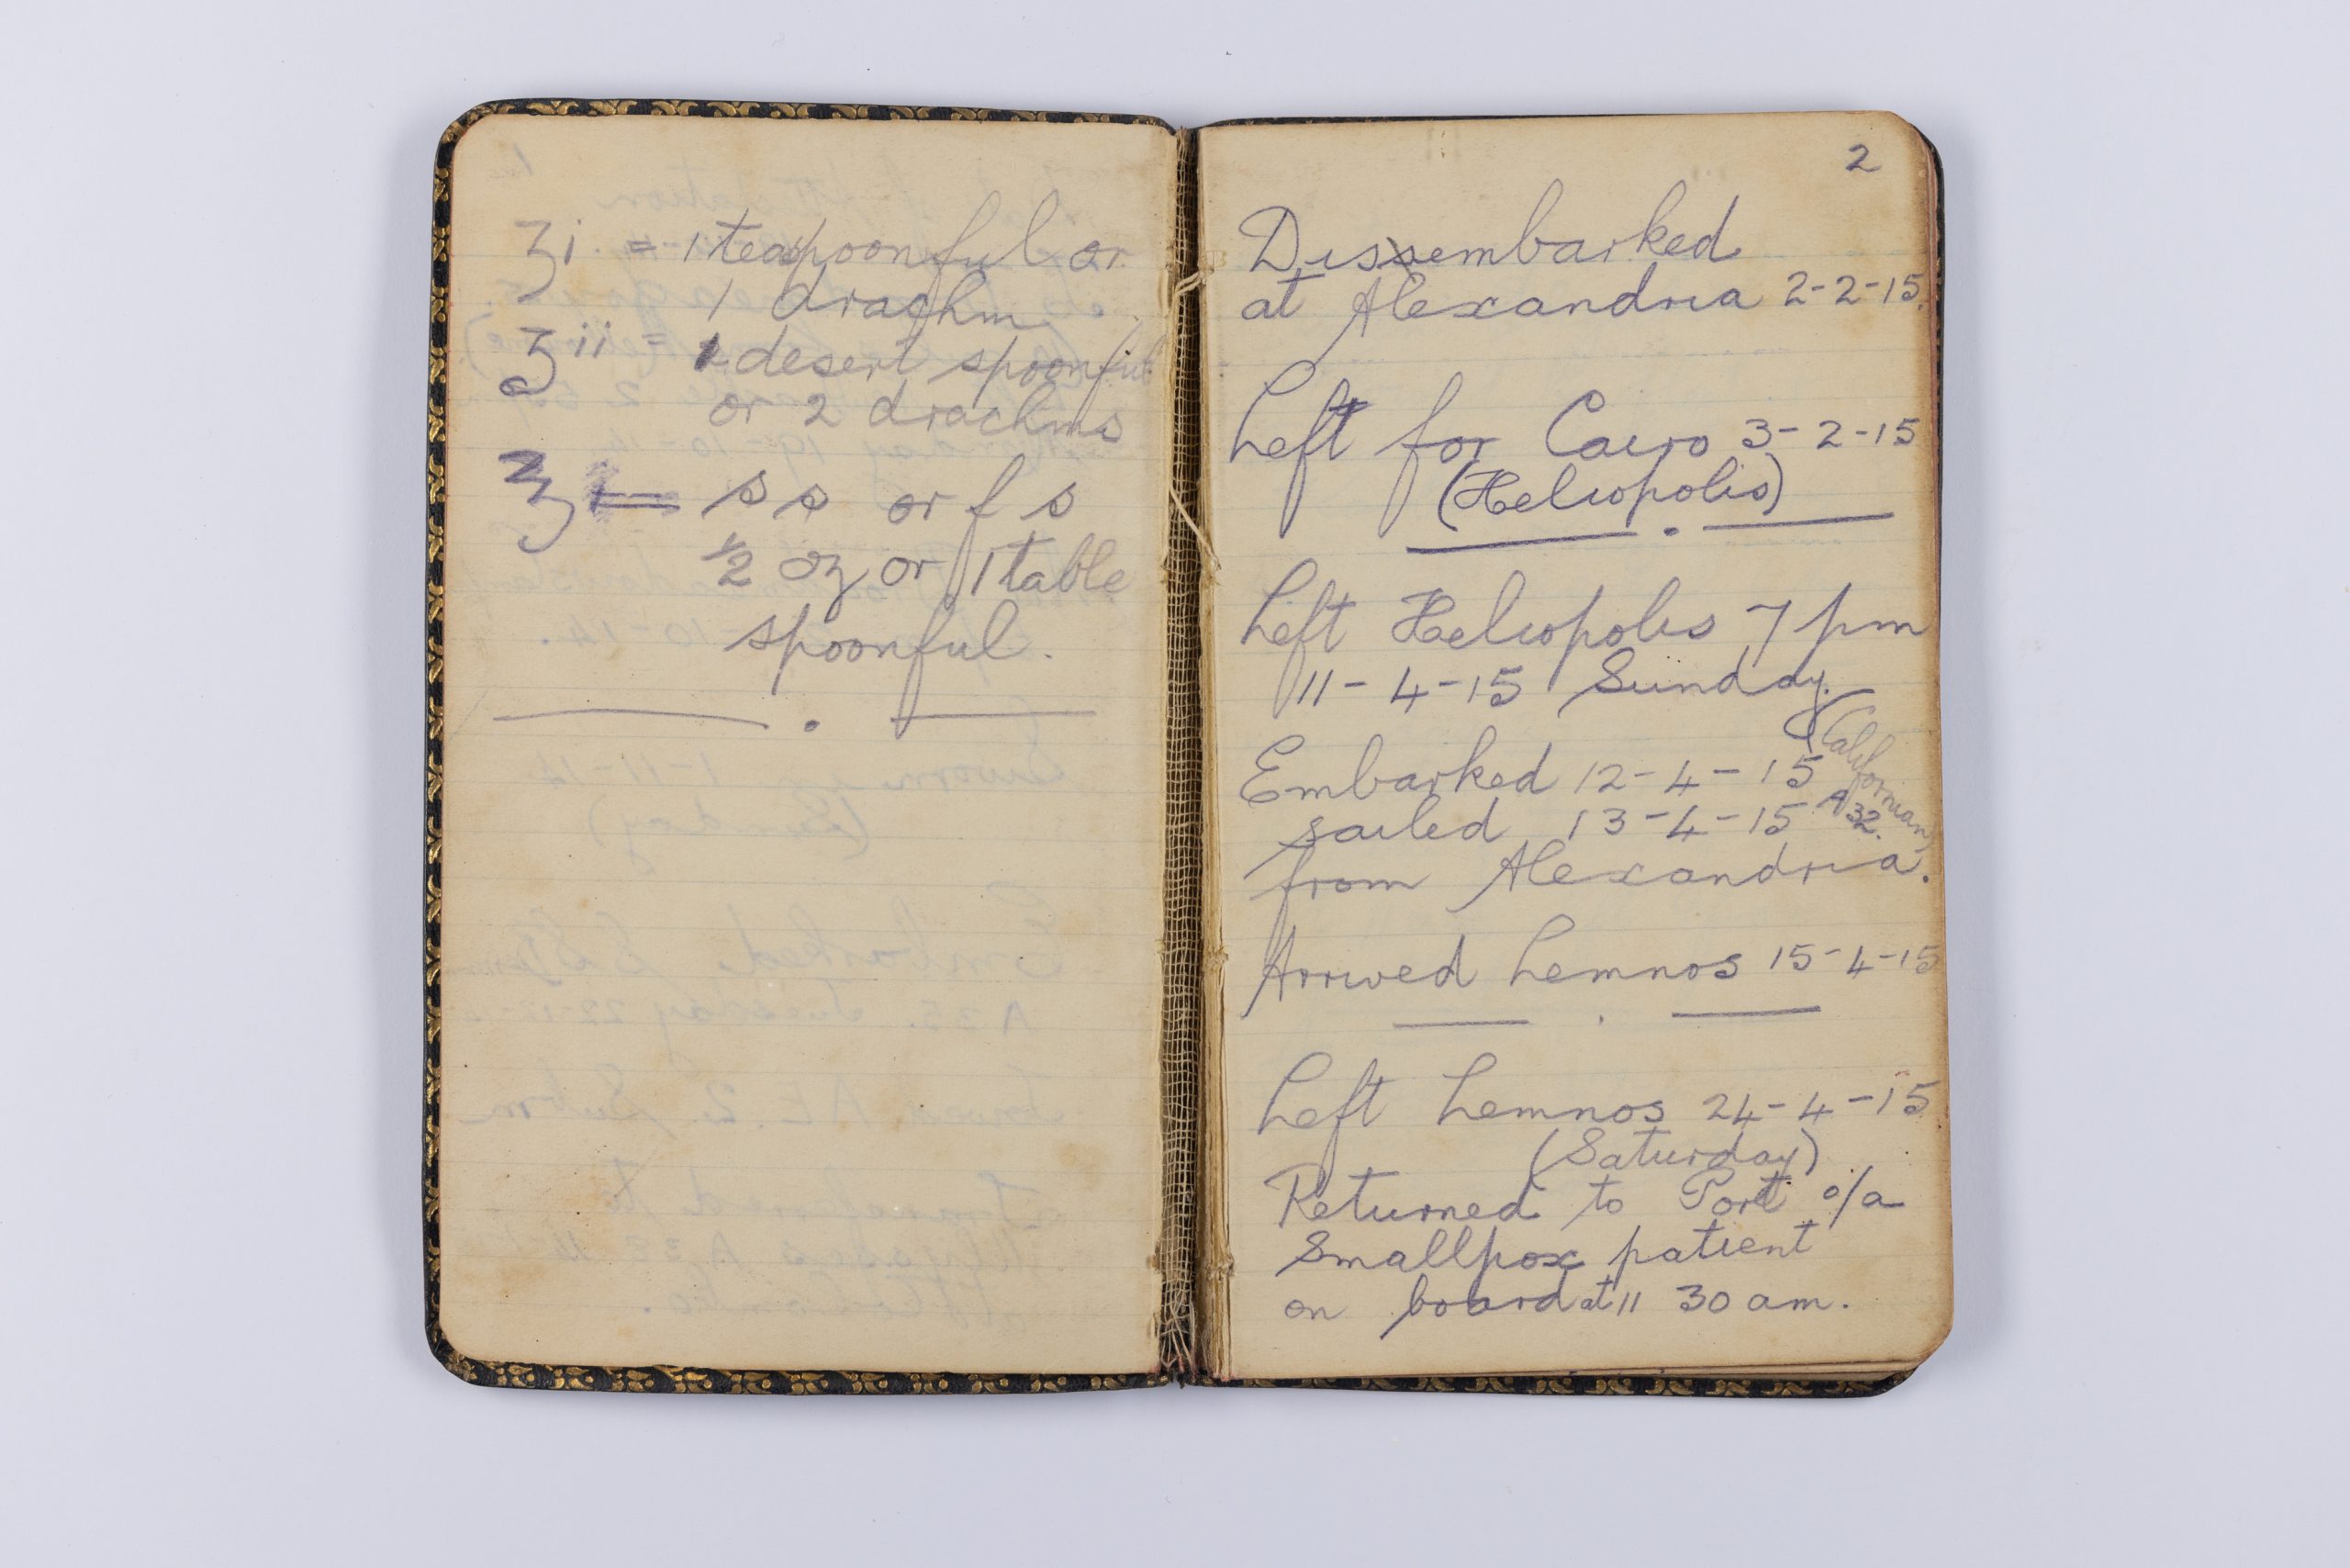 ʒi = 1 teaspoonful or
1 drachm
ʒii = 1 desert spoonful
or 2 drachms
℥ ss or fs
1/2 oz or 1 table
spoonful.
2
Dissembarked
at Alexandria 2-2-15.
Left for Cairo 3-2-15
(Heliopolis)
Left Heliopolis 7 pm
11-4-15 Sunday.
(Californian)
Embarked 12-4-15
A 32.
sailed 13-4-15
from Alexandria.
Arrived Lemnos 15-4-15
Left Lemnos 24-4-15
(Saturday)
Returned to Port o/a
Smallpox patient
on board at 11 30 am.